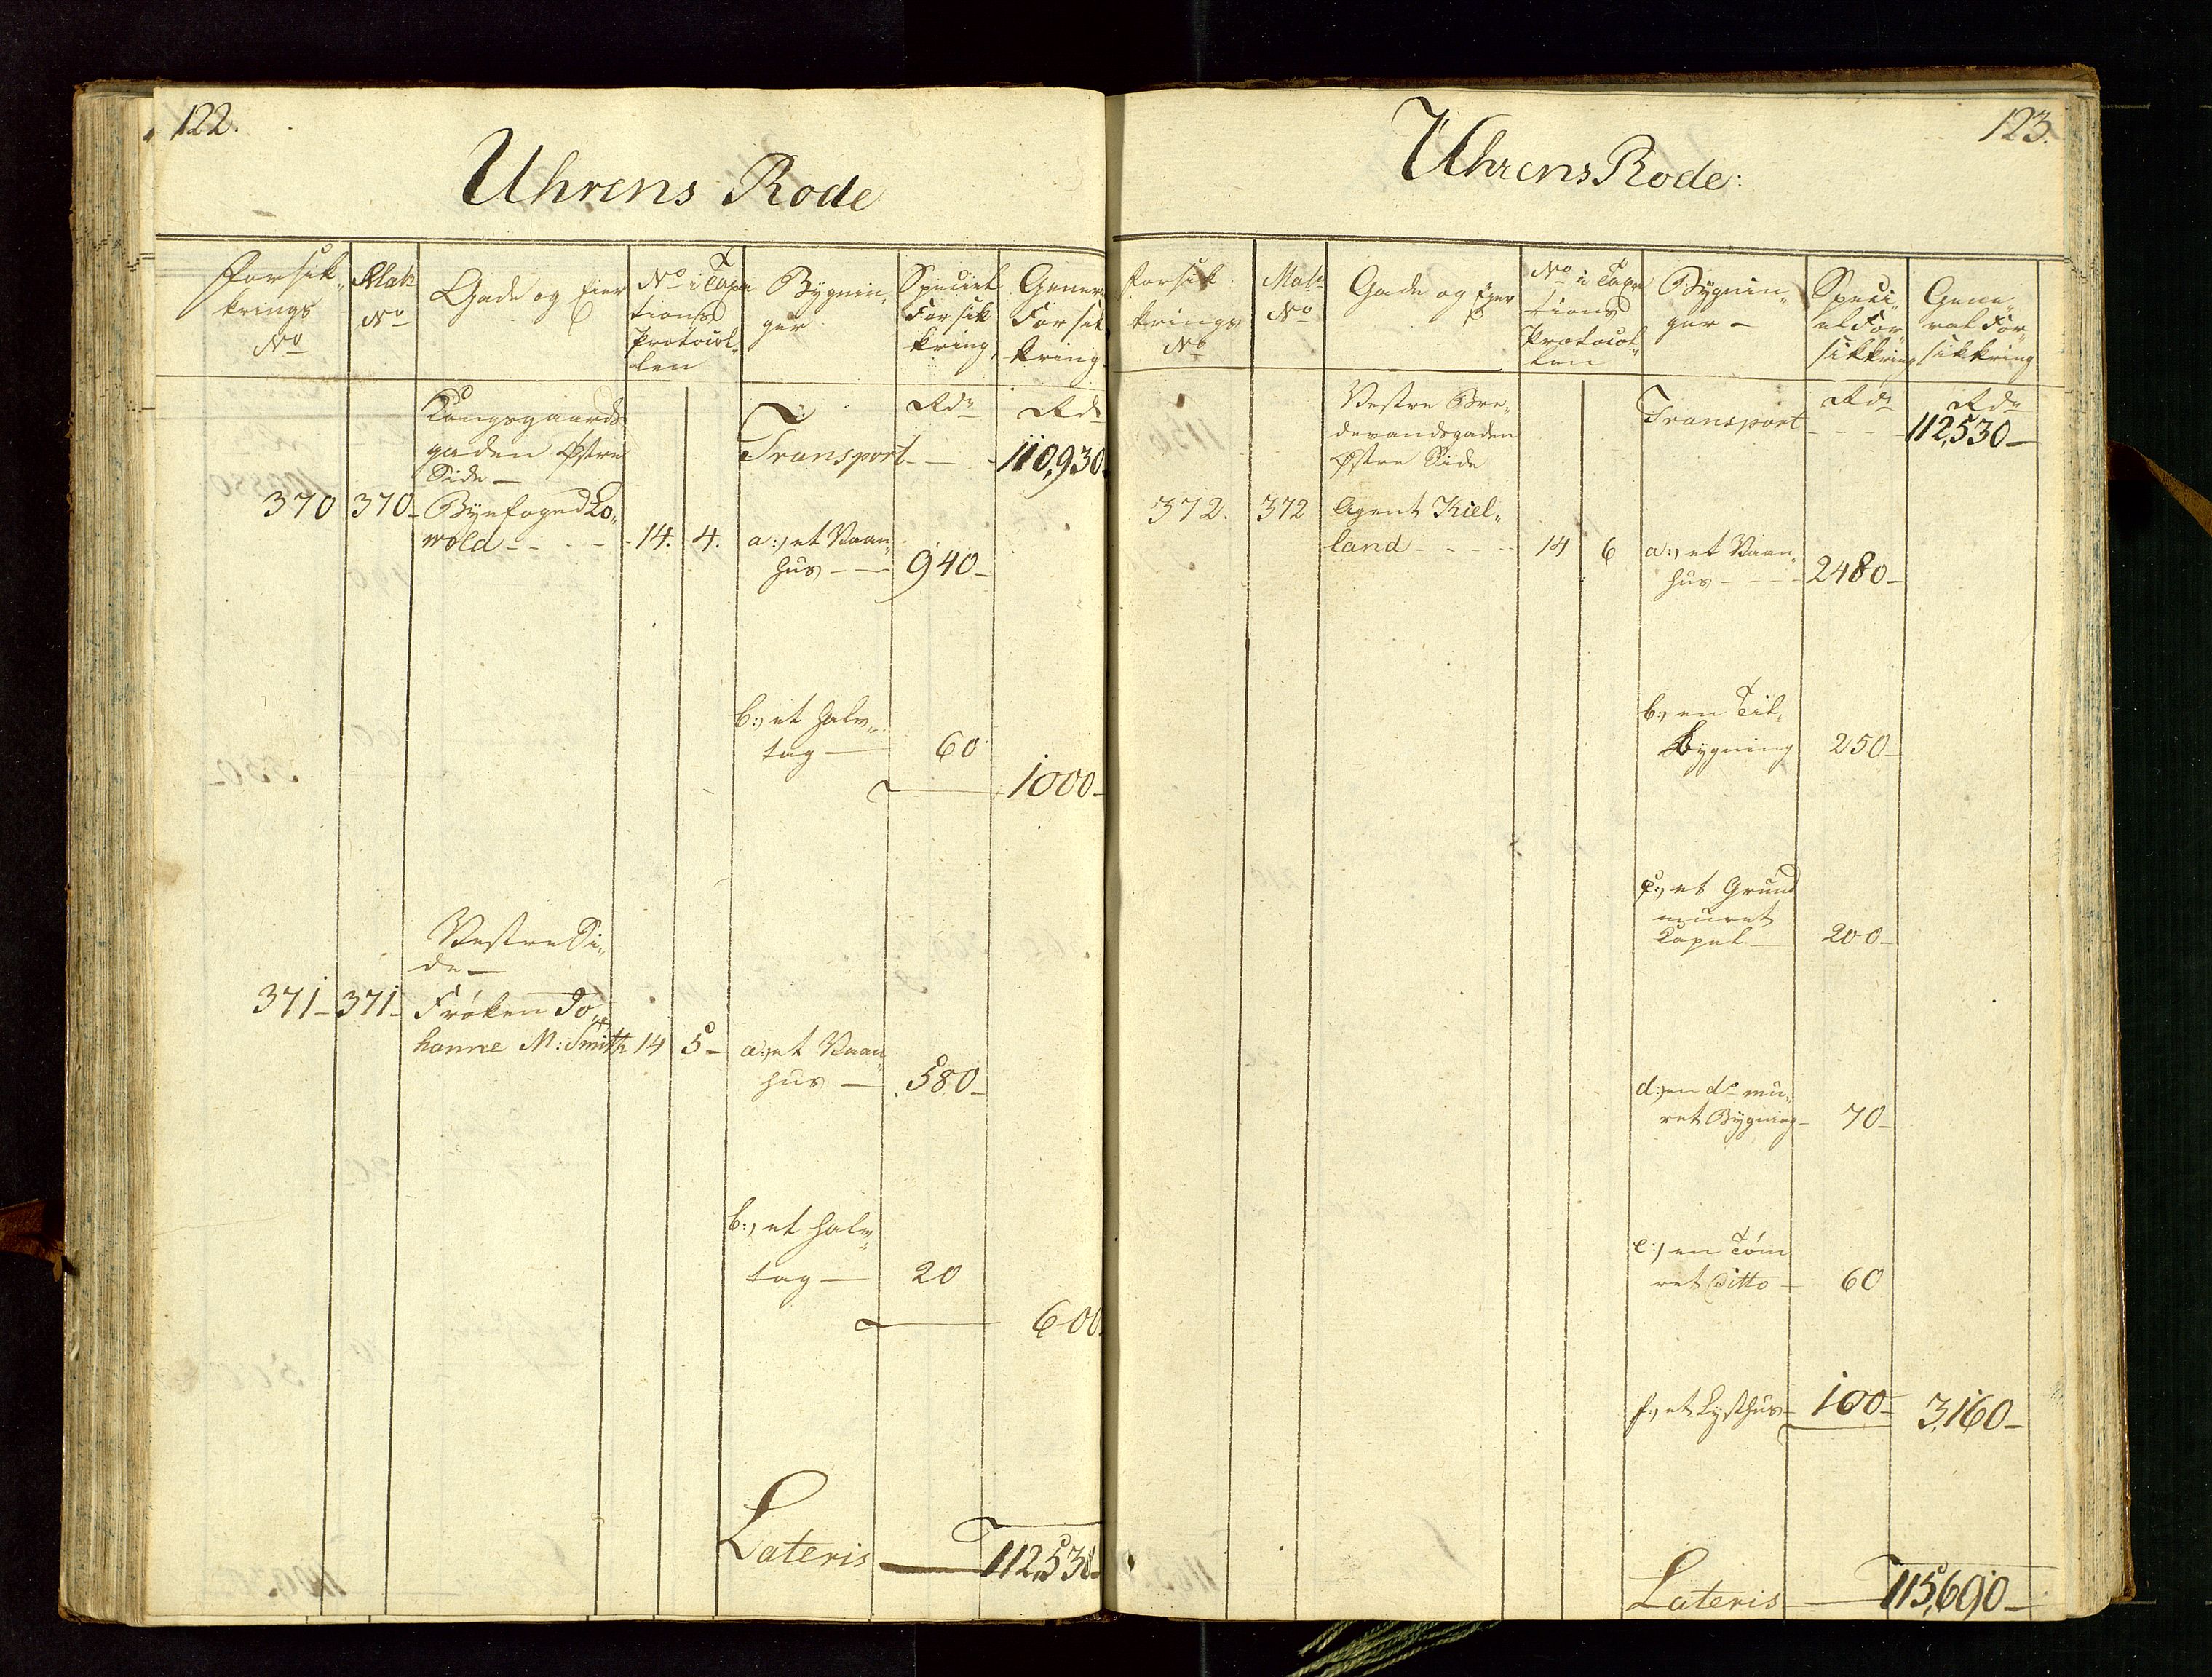 122.
Uhrens Rode
Forsik„
krings
No
Matr
No
Gade og Eier
No i Taxa
tions
Protocol„
len
Bygnin„
ger
Speciel
Forsik
kring
Gener
Forsik
kring
Kongsgaards
gaden Østre
Side —
Rdr
Rdr
Transport - - - 110,930
370 370 - Byefoged Lo„
wold - - - - 14. 4. a:, et Vaan„
hus - — 940 -
b:, et halv„
tag — 60
1000 -
Vestre Si„
de —
371 - 371 - Frøken Jo„
hanne M: Smith 14 5 - a:, et Vaan„
hus — 580 -
b:, et halv„
tag — 20
600
Lateris — 112,530 -
123.
Uhrens Rode:
Forsik„
krings
No
Matr
No
Gade og Eyer
No i Taxa
tions
Protocol„
len
Bygnin„
ger —
Speci„
el For„
sikkring
Gene„
ral For„
sikkring
Vestre Bre„
devandsgaden
Østre Side
Rdr
Rdr
Transport - - - 112,530 —
372. 372 Agent Kiel„
land - - - - 14 6 a:, et Vaan„
hus - - - 2480 -
b:, en Til„
bygning 250 -
c:, et Grund
muret
Capel — 200 -
d:, en do mu„
ret Bygning - 70 -
e:, en Tøm
ret Ditto — 60
f:, et Lysthus - 100 - 3,160 -
Lateris — 115,690 -